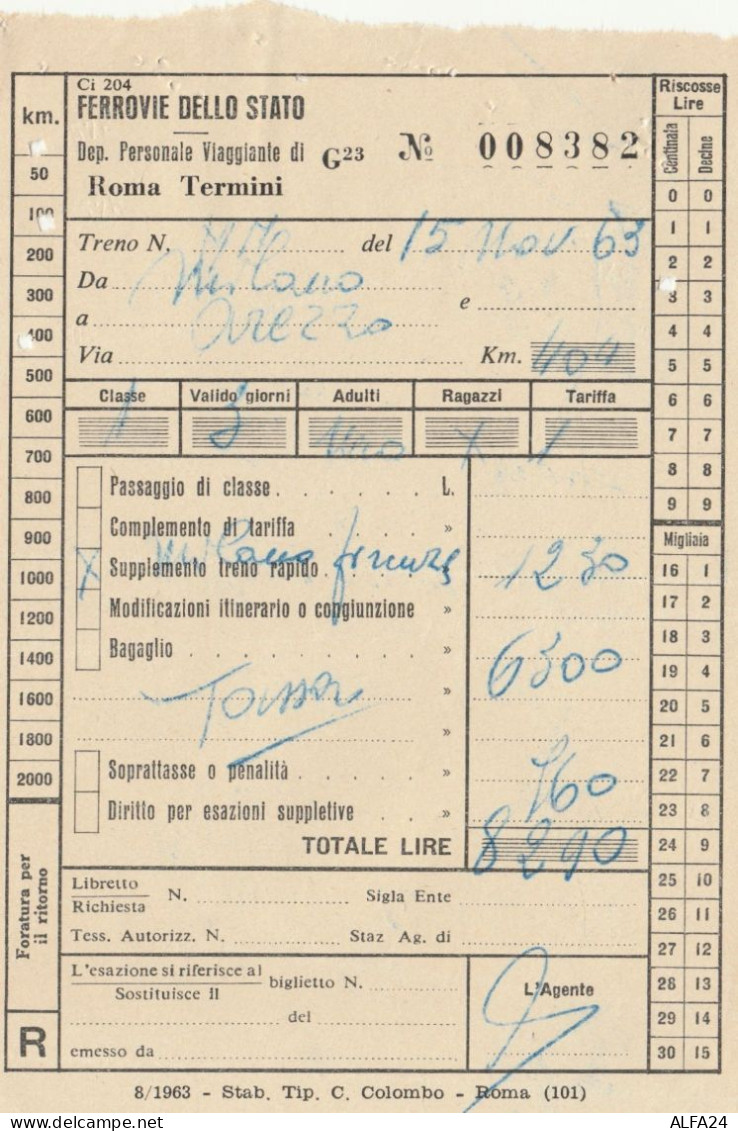 Ci 204
FERROVIE DELLO STATO
Dep. Personale Viaggiante di G23 No 008382
Roma Termini
Treno N. del 15 Nov. 63
Da Milano
a Arezzo e
Via Km. 404
Classe Valido giorni Adulti Ragazzi Tariffa
1 3 uno x 1
Passaggio di classe L.
Complemento di tariffa »
Milano Firenze
X Supplemento treno rapido » 1230
Modificazioni itinerario o congiunzione »
Bagaglio » 6300
Tassa »
»
Soprattasse o penalità » 760
Diritto per esazioni suppletive »
TOTALE LIRE 8290
Libretto
Richiesta N. Sigla Ente
Tess. Autorizz. N. Staz Ag. di
L'esazione si riferisce al
Sostituisce il biglietto N.
del
emesso da
L'Agente
km.
50
100
200
300
400
500
600
700
800
900
1000
1200
1400
1600
1800
2000
Foratura per
il ritorno
R
Riscosse
Lire
Centinaia Decine
0 0
1 1
2 2
3 3
4 4
5 5
6 6
7 7
8 8
9 9
Migliaia
16 1
17 2
18 3
19 4
20 5
21 6
22 7
23 8
24 9
25 10
26 11
27 12
28 13
29 14
30 15
8/1963 - Stab. Tip. C. Colombo - Roma (101)
ALFA24